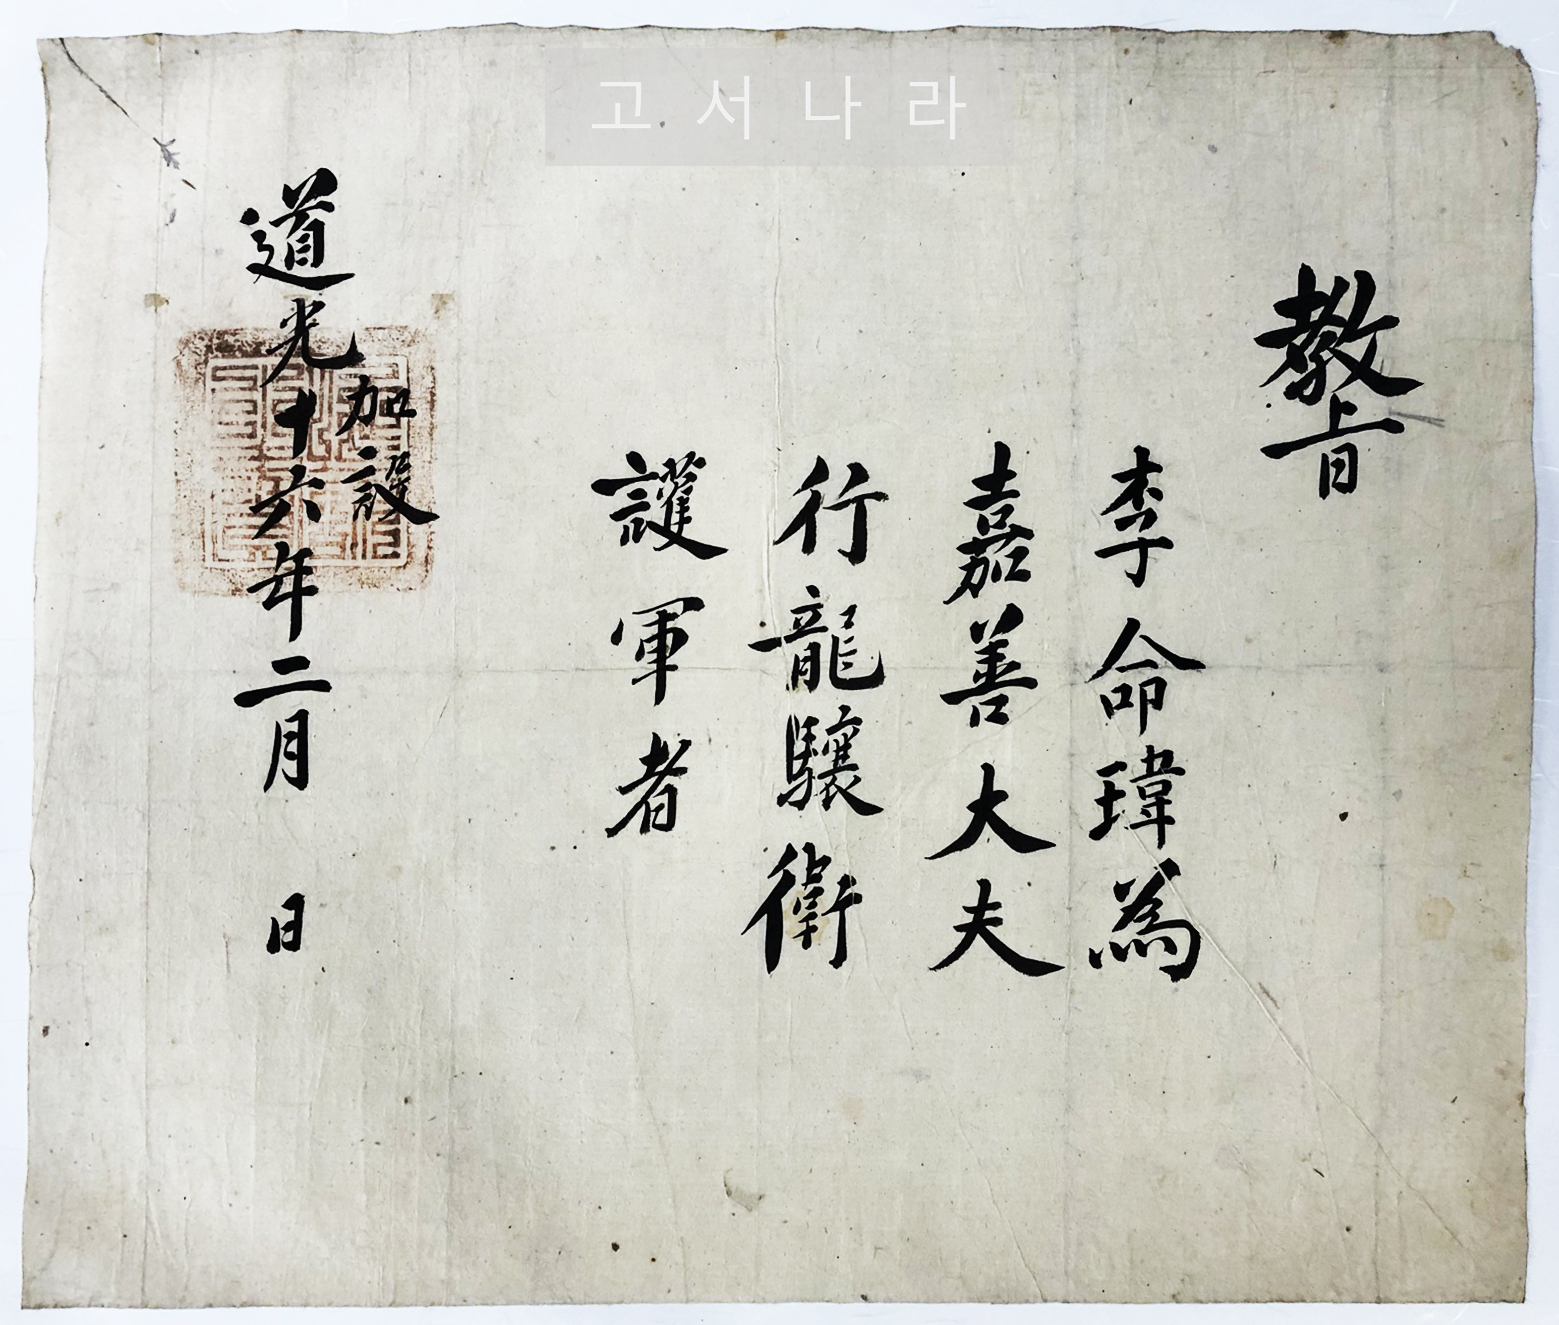 고서나라
敎旨
李命瑋為
嘉善大夫
行龍驤衛
護軍者
道光十六年二月 日
加設